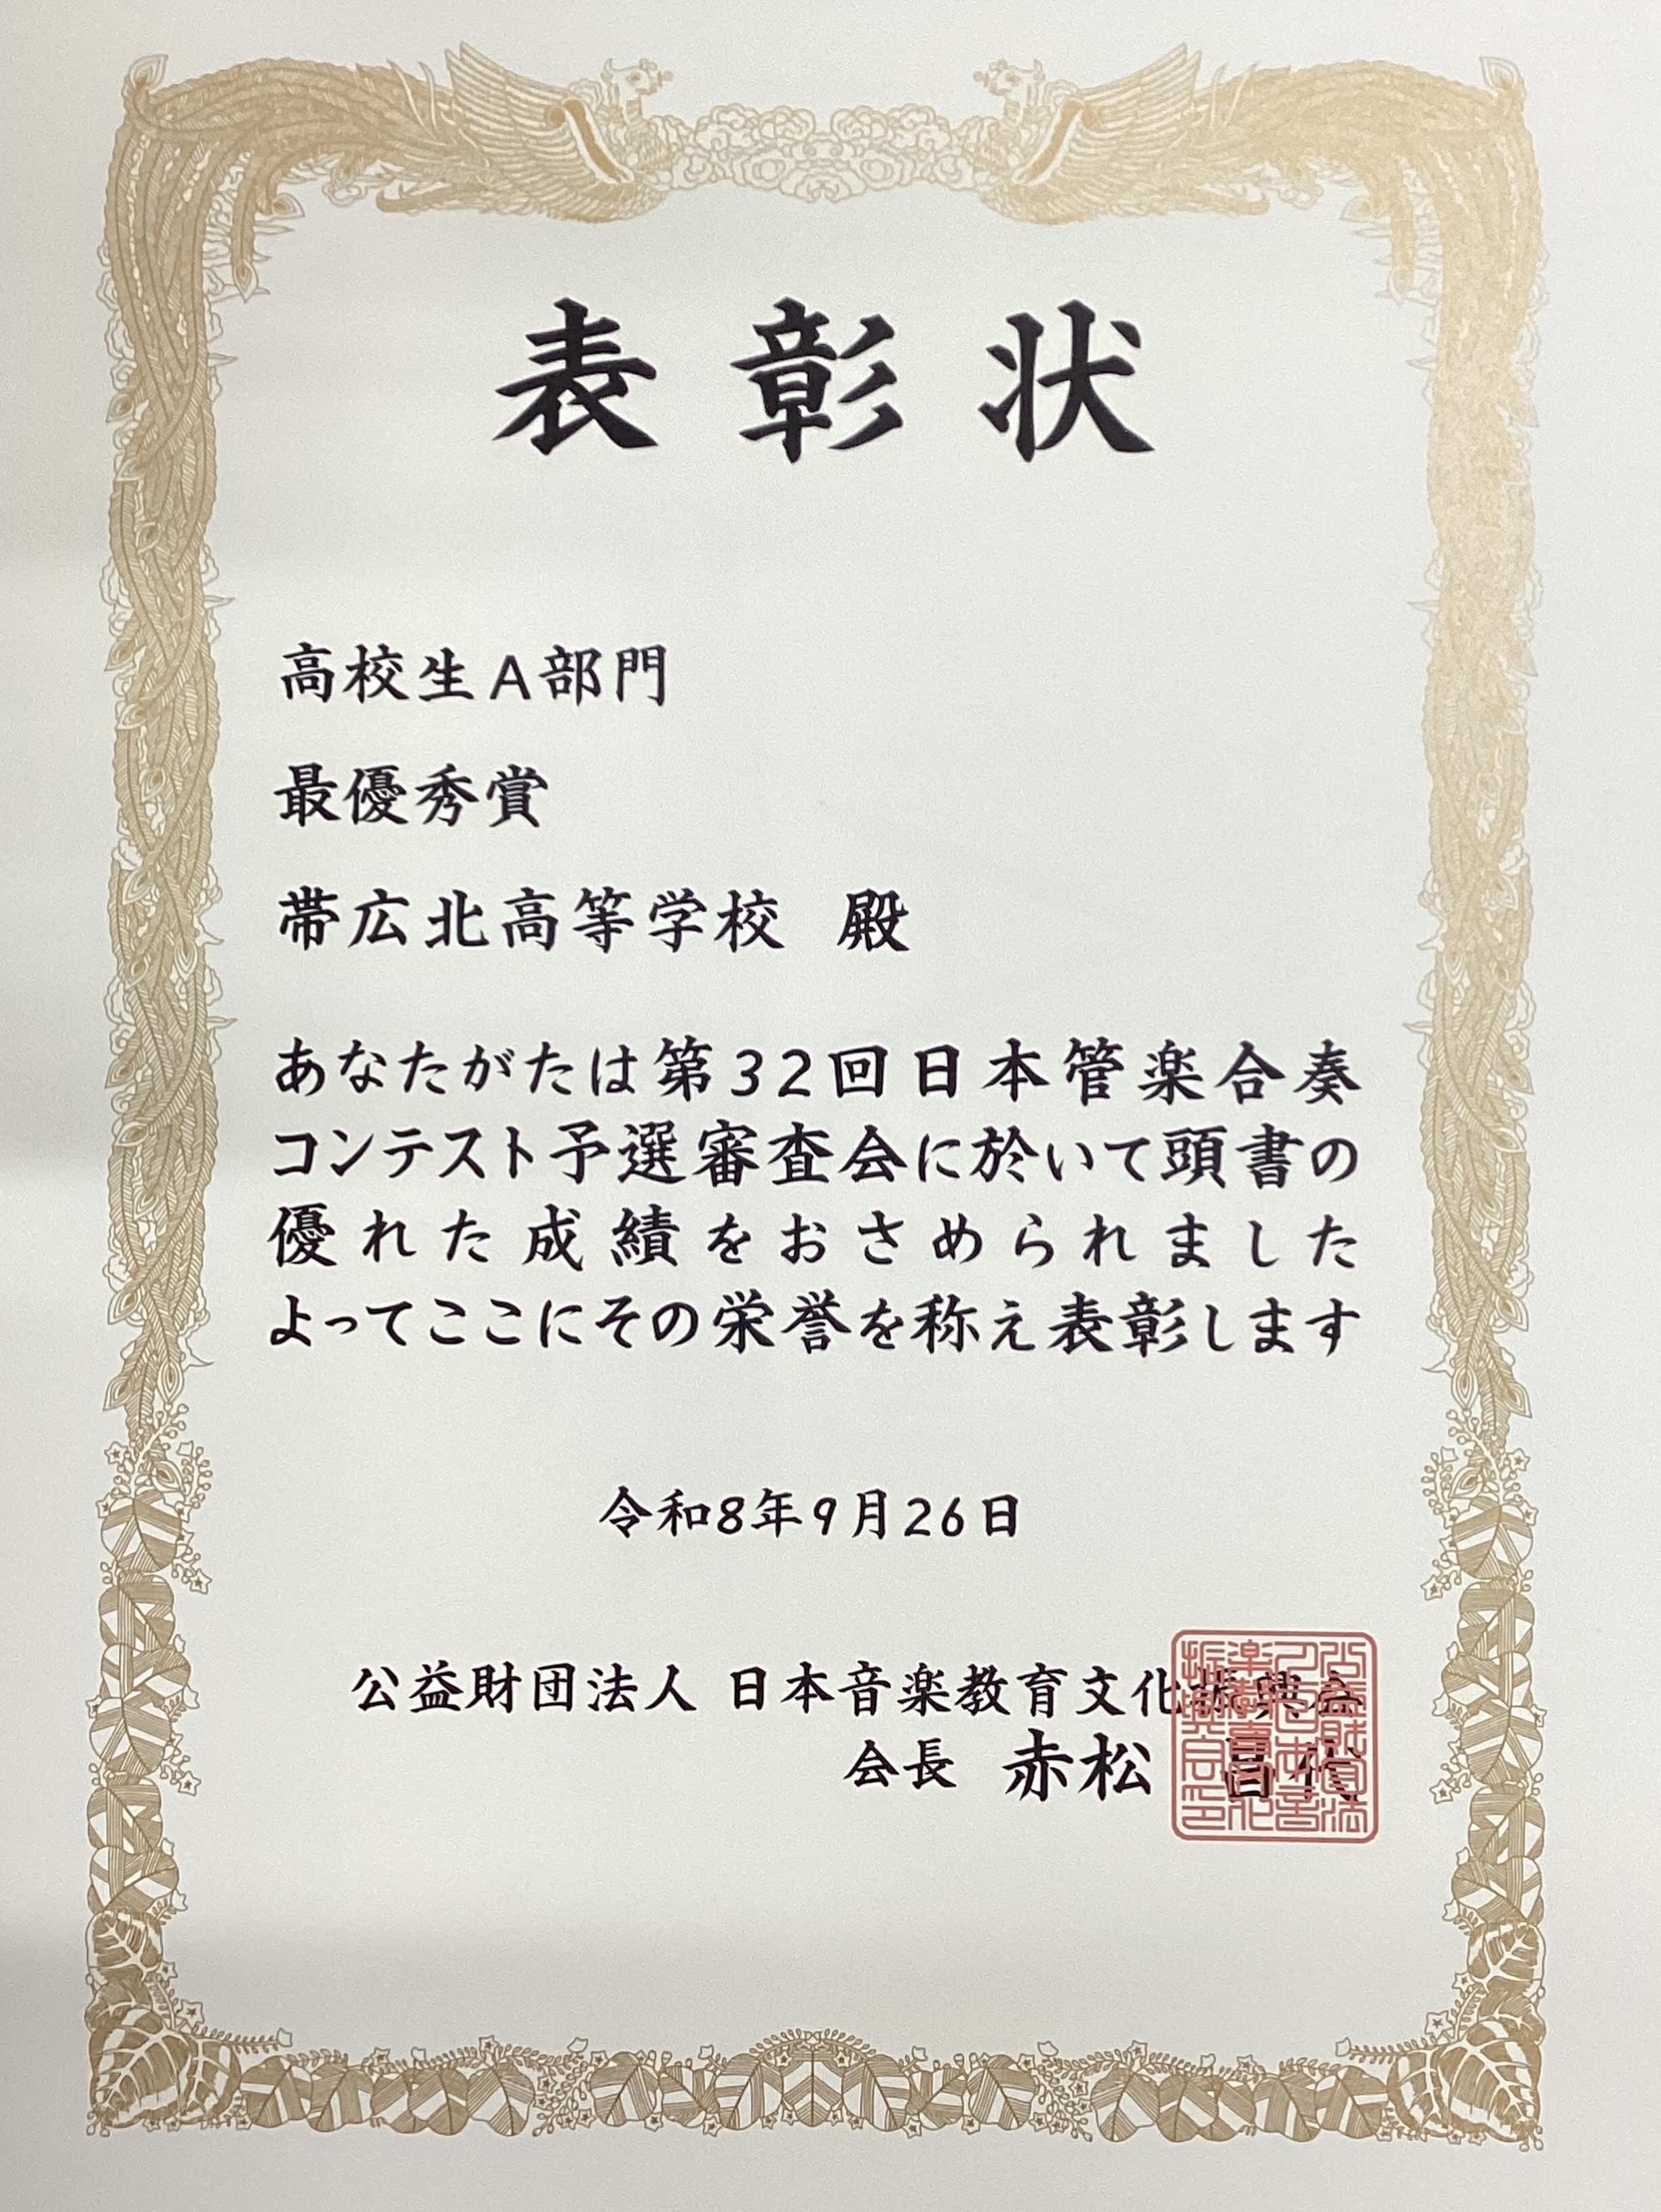 表彰状
高校生A部門
最優秀賞
帯広北高等学校 殿
あなたがたは第32回日本管楽合奏
コンテスト予選審査会に於いて頭書の
優れた成績をおさめられました
よってここにその栄誉を称え表彰します
令和8年9月26日
公益財団法人 日本音楽教育文化振興会
会長 赤松 昌代